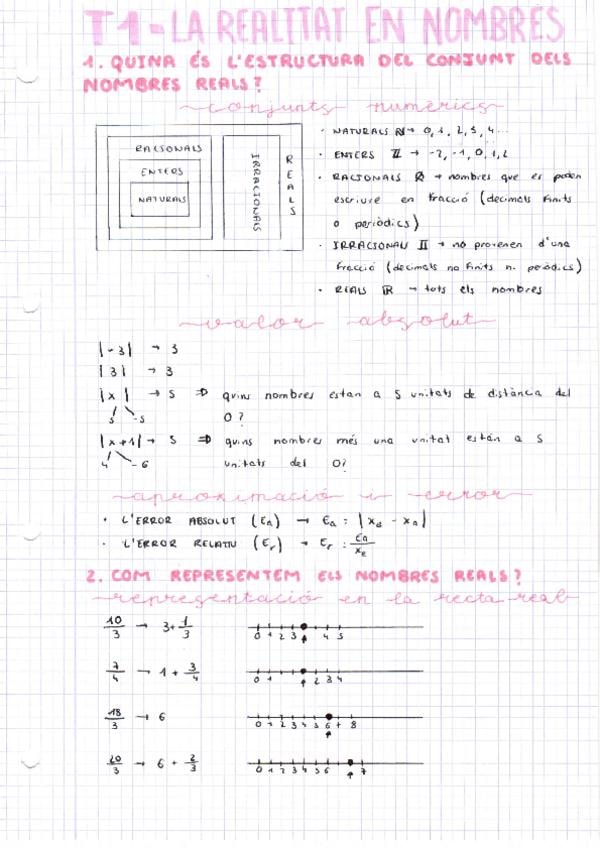 T1- LA REALITAT EN NOMBRES
1. QUINA ÉS L'ESTRUCTURA DEL CONJUNT DELS
NOMBRES REALS?
conjunts numèrics
RACIONALS
ENTERS
NATURALS
IRRACIONALS
REALS
· NATURALS ℕ → 0, 1, 2, 3, 4...
· ENTERS ℤ → -2, -1, 0, 1, 2
· RACIONALS ℚ → nombres que es poden
escriure en fracció (decimals finits
o periòdics)
· IRRACIONALS 𝕀 → no provenen d'una
fracció (decimals no finits n. periòdics)
· REALS ℝ → tots els nombres
valor absolut
|-3| → 3
|3| → 3
|x| → 5 ⇒ quins nombres estan a 5 unitats de distància del
5 -5 0?
|x+1| → 5 ⇒ quins nombres més una unitat están a 5
4 -6 unitats del 0?
aproximació i error
· L'ERROR ABSOLUT (Ea) → Ea: |xe - xa|
· L'ERROR RELATIU (Er) → Er: Ea/xe
2. COM REPRESENTEM ELS NOMBRES REALS?
representació en la recta real
10/3 → 3+1/3
0 1 2 3 4 5
7/4 → 1 + 3/4
0 1 2 3 4
18/3 → 6
0 1 2 3 4 5 6 7 8
20/3 → 6 + 2/3
0 1 2 3 4 5 6 7